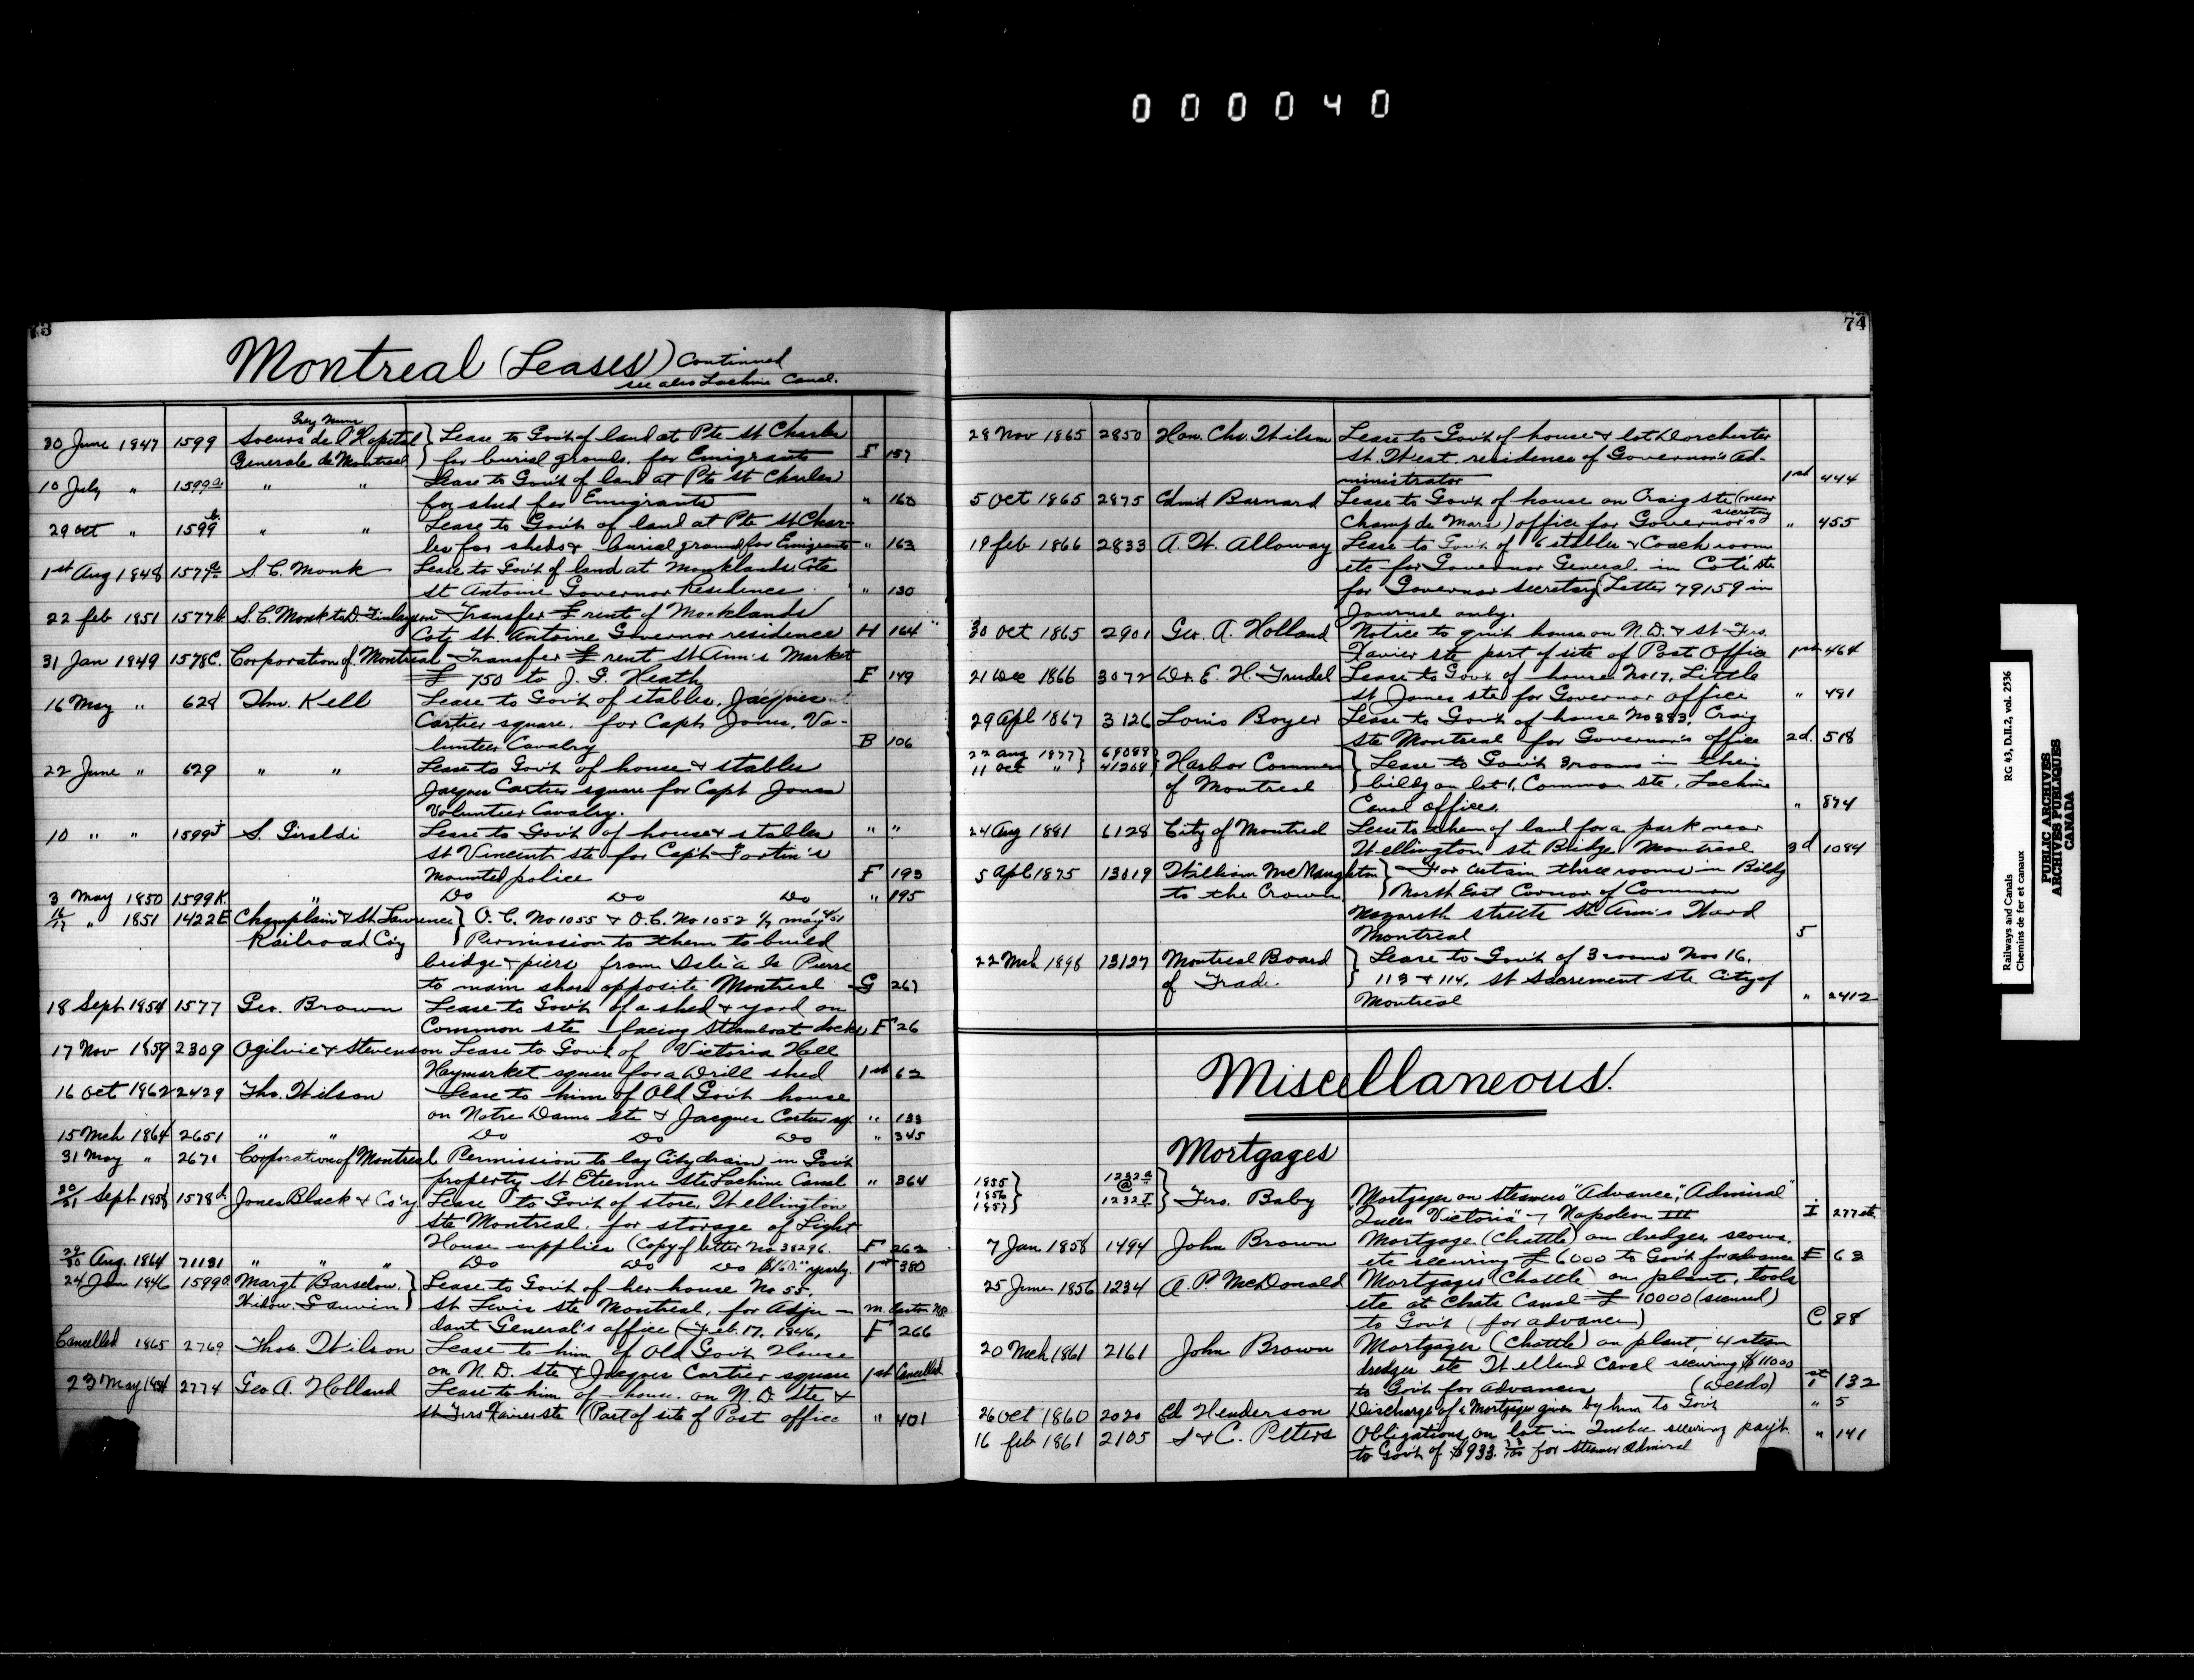 000040
73
Montreal (Leases) Continued
see also Lachine Canal.
Grey Nuns
30 June 1847 1599 Soeurs de l'Hopital } Lease to Gov't of land at Pte St Charles
Generale de Montreal } for burial grounds, for Emigrants F 157
10 July " 1599a " " Lease to Gov't of land at Pte St Charles
for shed for Emigrants " 160
29 Oct " 1599b " " Lease to Gov't of land at Pte St Char-
les for sheds & burial ground for Emigrants " 163
1st Aug 1848 1577a S. C. Monk Lease to Gov't of land at Monklands Cote
St Antoine Governor Residence " 130
22 feb 1851 1577b S. C. Monk to D. Finlayson Transfer £ rent of Monklands
Cote St. Antoine Governor residence H 164
31 Jan 1849 1578C. Corporation of Montreal Transfer £ rent St Ann's Market
£ 750 to J. G. Heath F 149
16 May " 628 Thos. Kell Lease to Gov't of stables, Jacques
Cartier square, for Capt Jones, Vo-
lunteer Cavalry B 106
22 June " 629 " " Lease to Gov't of house & stables
Jacques Cartier square for Capt Jones
Volunteer Cavalry. " "
10 " " 1599J S. Giraldi Lease to Gov't of house & stables
St Vincent ste for Capt Fortin's
Mounted police F 193
3 May 1850 1599K. " Do Do Do " 195
16/17 " 1851 1422E Champlain & St. Lawrence } O. C. No 1055 & O. C. No 1052 1/7 may 4/51
Railroad Co'y } Permission to them to build
bridge & piers from Isle a la Pierre
to main shore opposite Montreal G 267
18 Sept 1854 1577 Geo. Brown Lease to Gov't of a shed & yard on
Common ste facing Steamboat docks F 26
17 Nov 1859 2309 Ogilvie & Stevenson Lease to Gov't of Victoria Hall
Haymarket square for a Drill shed 1st 62
16 Oct 1862 2429 Tho. Wilson Lease to him of Old Gov't house
on Notre Dame ste & Jacques Cartier sq. " 133
15 Mch 1864 2651 " " Do Do Do " 345
31 May " 2671 Corporation of Montreal Permission to lay City drain in Gov't
property St Etienne Ste Lachine Canal " 364
20/21 Sept 1858 1578d Jones Black & Co'y Lease to Gov't of store, Wellington
ste Montreal, for storage of Light
House supplies (Copy of letter No 38296. F 262
29/30 Aug. 1864 71131 " " " Do Do Do $160.00 yearly. 1st 380
24 Jan 1846 1599D. Margt Barselou. } Lease to Gov't of her house No 55.
Widow. Gauvin } St Lewis ste Montreal, for Adju-
dant General's office (Feb. 17. 1846, F 266
Cancelled 1865 2769 Thos. Wilson Lease to him of Old Gov't House
on N. D. ste & Jacques Cartier square 1st Cancelled
23 May 2774 Geo A. Holland Lease to him of house on N. D. Ste &
St Frs Xavier ste (Part of site of Post office " 401
74
28 Nov 1865 2850 Hon. Chs. Wilson Lease to Gov't of house & lot Dorchester
St. West. residence of Governor's Ad-
ministrator 1st 444
5 Oct 1865 2875 Edmd Barnard Lease to Gov't of house on Craig ste (near
Champ de Mars) office for Governor's secretary " 455
19 feb 1866 2833 A. W. Alloway Lease to Gov't of 6 stables & Coach room
etc for Governor General in Coté ste
for Governor secretary (Letter 79159 in
Journal only.
30 Oct 1865 2901 Geo. A. Holland Notice to quit house on N. D. & St Frs.
Xavier ste part of site of Post Office 1st 464
21 Dec 1866 3072 Dr. E. H. Trudel Lease to Gov't of house No 17, Little
St James ste for Governor office " 491
29 Apl 1867 3126 Louis Boyer Lease to Gov't of house No 383, Craig
ste Montreal for Governor's office 2d. 518
22 Aug 1877 } 69088 } Harbor Commrs } Lease to Gov't 3 rooms in their
11 Oct " } 41268 } of Montreal } bildg on lot 1, Common ste, Lachine
Canal office. " 874
24 Aug 1881 6128 City of Montreal Lease to them of land for a park near
Wellington ste Bridge Montreal 3d 1084
5 Apl 1895 13019 William McNaughton } For certain three rooms in Bildg
to the Crown } North East Corner of Common
Nazareth streets St Ann's Ward
Montreal 5
22 Mch 1898 13127 Montreal Board } Lease to Gov't of 3 rooms Nos 16,
of Trade. } 113 & 114, St Sacrement ste City of
Montreal " 2412
Miscellaneous
Mortgages
1855 } 1232a }
1856 } @ } Frs. Baby Mortgages on steamers "Advance", "Admiral"
1857 } 1232I } "Queen Victoria" & Napoleon III I 277 etc
7 Jan 1858 1494 John Brown Mortgage (Chattle) on dredges, scows,
etc securing £ 6000 to Gov't for advance E 63
25 June 1856 1234 A. P. McDonald Mortgages (Chattle) on plant, tools
etc at Chats Canal £ 10000 (secured)
to Gov't (for advance) C 88
20 Mch 1861 2161 John Brown Mortgages (Chattle) on plant, 4 steam
dredges etc Welland Canal securing $11000
to Gov't for advances (deeds) 1st 132
26 Oct 1860 2020 Ed Henderson Discharge of a Mortgage given by him to Gov't " 5
16 feb 1861 2105 S & C. Peters Obligations on lot in Quebec securing payt.
to Gov't of $933. for steamer Admiral " 141
Railways and Canals RG 43, D.II.2, vol. 2536
Chemins de fer et canaux
PUBLIC ARCHIVES
ARCHIVES PUBLIQUES
CANADA